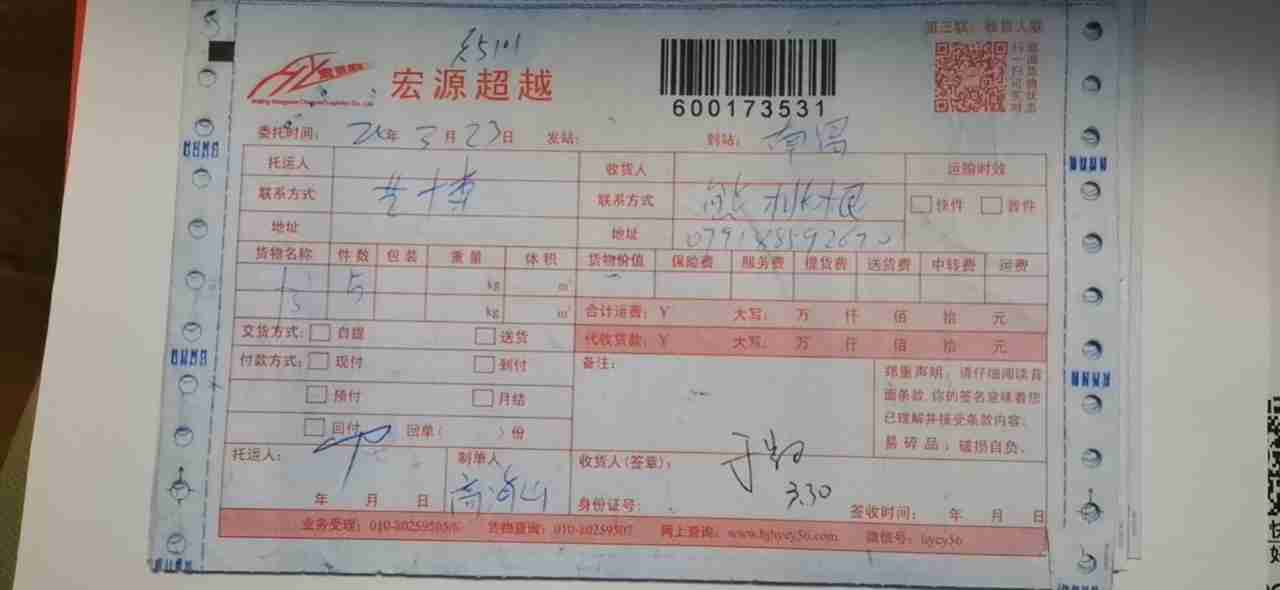 第三联：收货人联
宏源超越
600173531
扫一扫可实时
追踪货物状态
委托时间： 年 3月23日 发站： 到站：南昌
托运人 收货人 运输时效
联系方式 联系方式 快件 普件
地址 地址
货物名称 件数 包装 重量 体积 货物价值 保险费 服务费 提货费 送货费 中转费 运费
5 kg m³
kg m³ 合计运费：¥ 大写： 万 仟 佰 拾 元
交货方式： 自提 送货 代收货款：¥ 大写： 万 仟 佰 拾 元
付款方式： 现付 到付 备注： 郑重声明，请仔细阅读背
面条款,你的签名意味着您
预付 月结
已理解并接受条款内容。
回付 回单（ ）份
易碎品，破损自负。
托运人： 制单人 收货人(签章)：
3.30
年 月 日 身份证号： 签收时间： 年 月 日
业务受理： 货物查询：010-80259507 网上查询：www.bjhycy56.com 微信号：hycy56